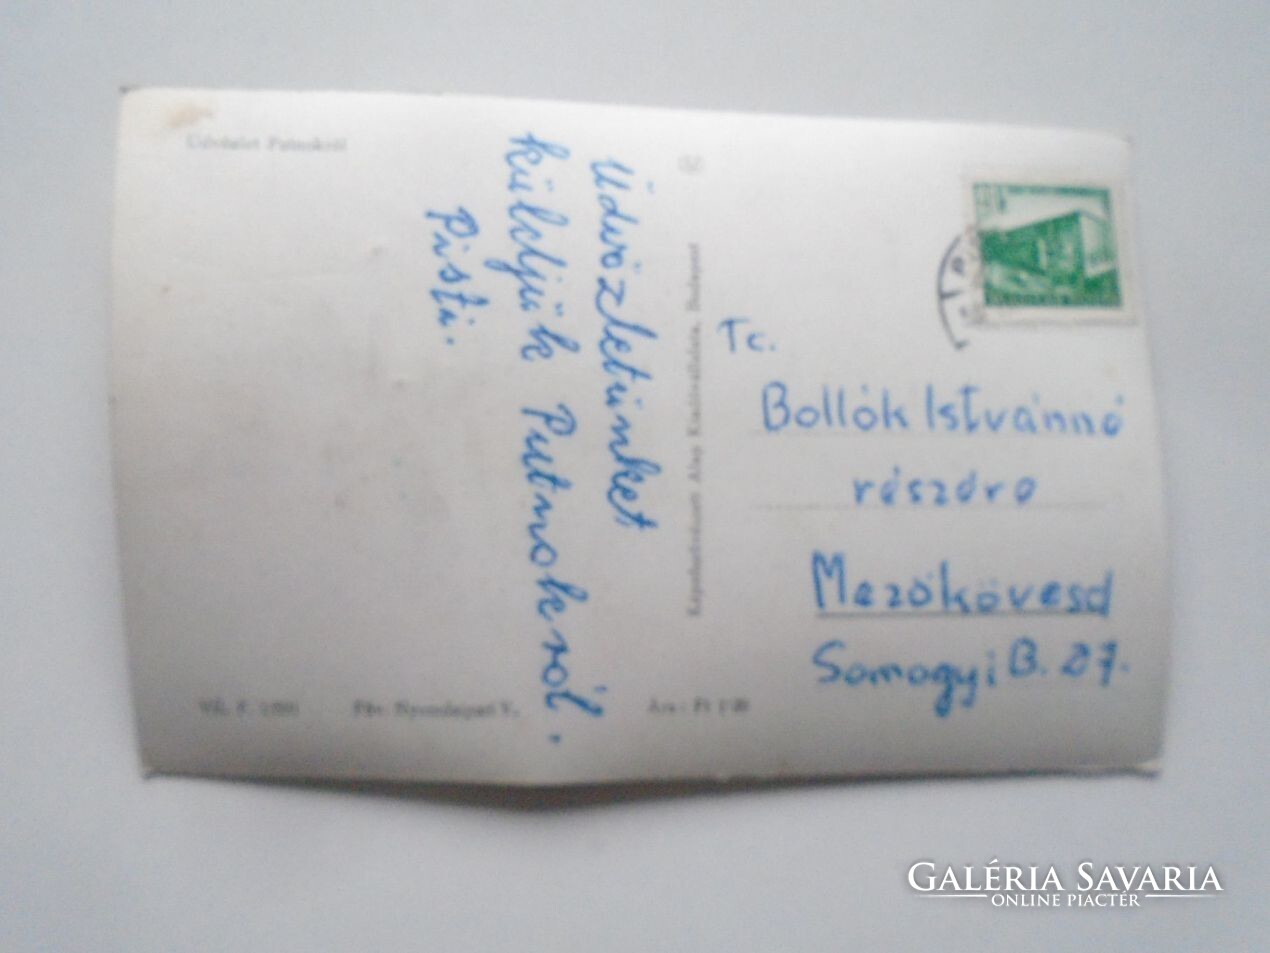 Üdvözlet Putnokról
Üdvözletünket
küldjük Putnokról.
Pisti.
Képzőművészeti Alap Kiadóvállalata, Budapest
Tc.
Bollók Istvánné
részére
Mezőkövesd
Somogyi B. 27.
Ára: Ft
GALÉRIA SAVARIA
ONLINE PIACTÉR